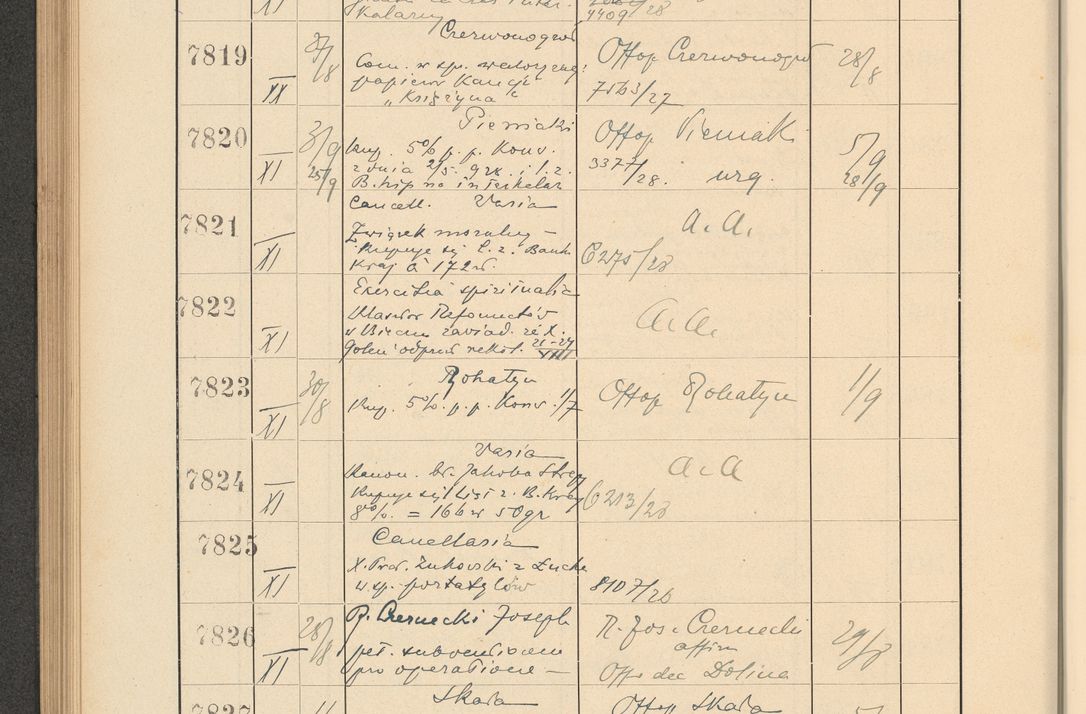 XI
Skalarny
4409/28
7819
27/8
XX
Czerwonogród
Com. w sp.
papierów Kancji
„Księżyna"
Offop Czerwonogród
7563/27
28/8
7820
3/9
25/9
XI
Pieniaki
Kup. 5% p.p. Konw.
z dnia 2/5. 928. i l. z.
B. hip na interkalar
Offop Pieniaki
3377/28. urg.
5/9
28/9
7821
XI
Cancell. Varia
Związek moralny –
Kupuje się l. z. Bank
Kraj á 172 zł.
a. a.
6275/28
7822
XI
Exercitia spiritualia
Klasztor Reformatów
w Bieczu zawiad. że X.
21-27
VIII
a. a.
7823
30/8
XI
Rohatyn
Kup. 5% p.p. Konw. 1/7
Offop Rohatyn
1/9
7824
XI
Varia
Kanon. bł. Jakóba Strepy
Kupuje się List z. B. Kraj
8% = 166 zł 50 gr
a. a
6213/28
7825
XI
Cancellaria
X. Prof. Żukowski z Łucka
w sp. portatylów
8107/26
7826
28/8
XI
P. Czernecki Joseph
pet. subventionem
pro operatione –
P. Jos. Czernecki
affirm
Off. dec Dolina
29/8
7827
Skała
Offop Skała